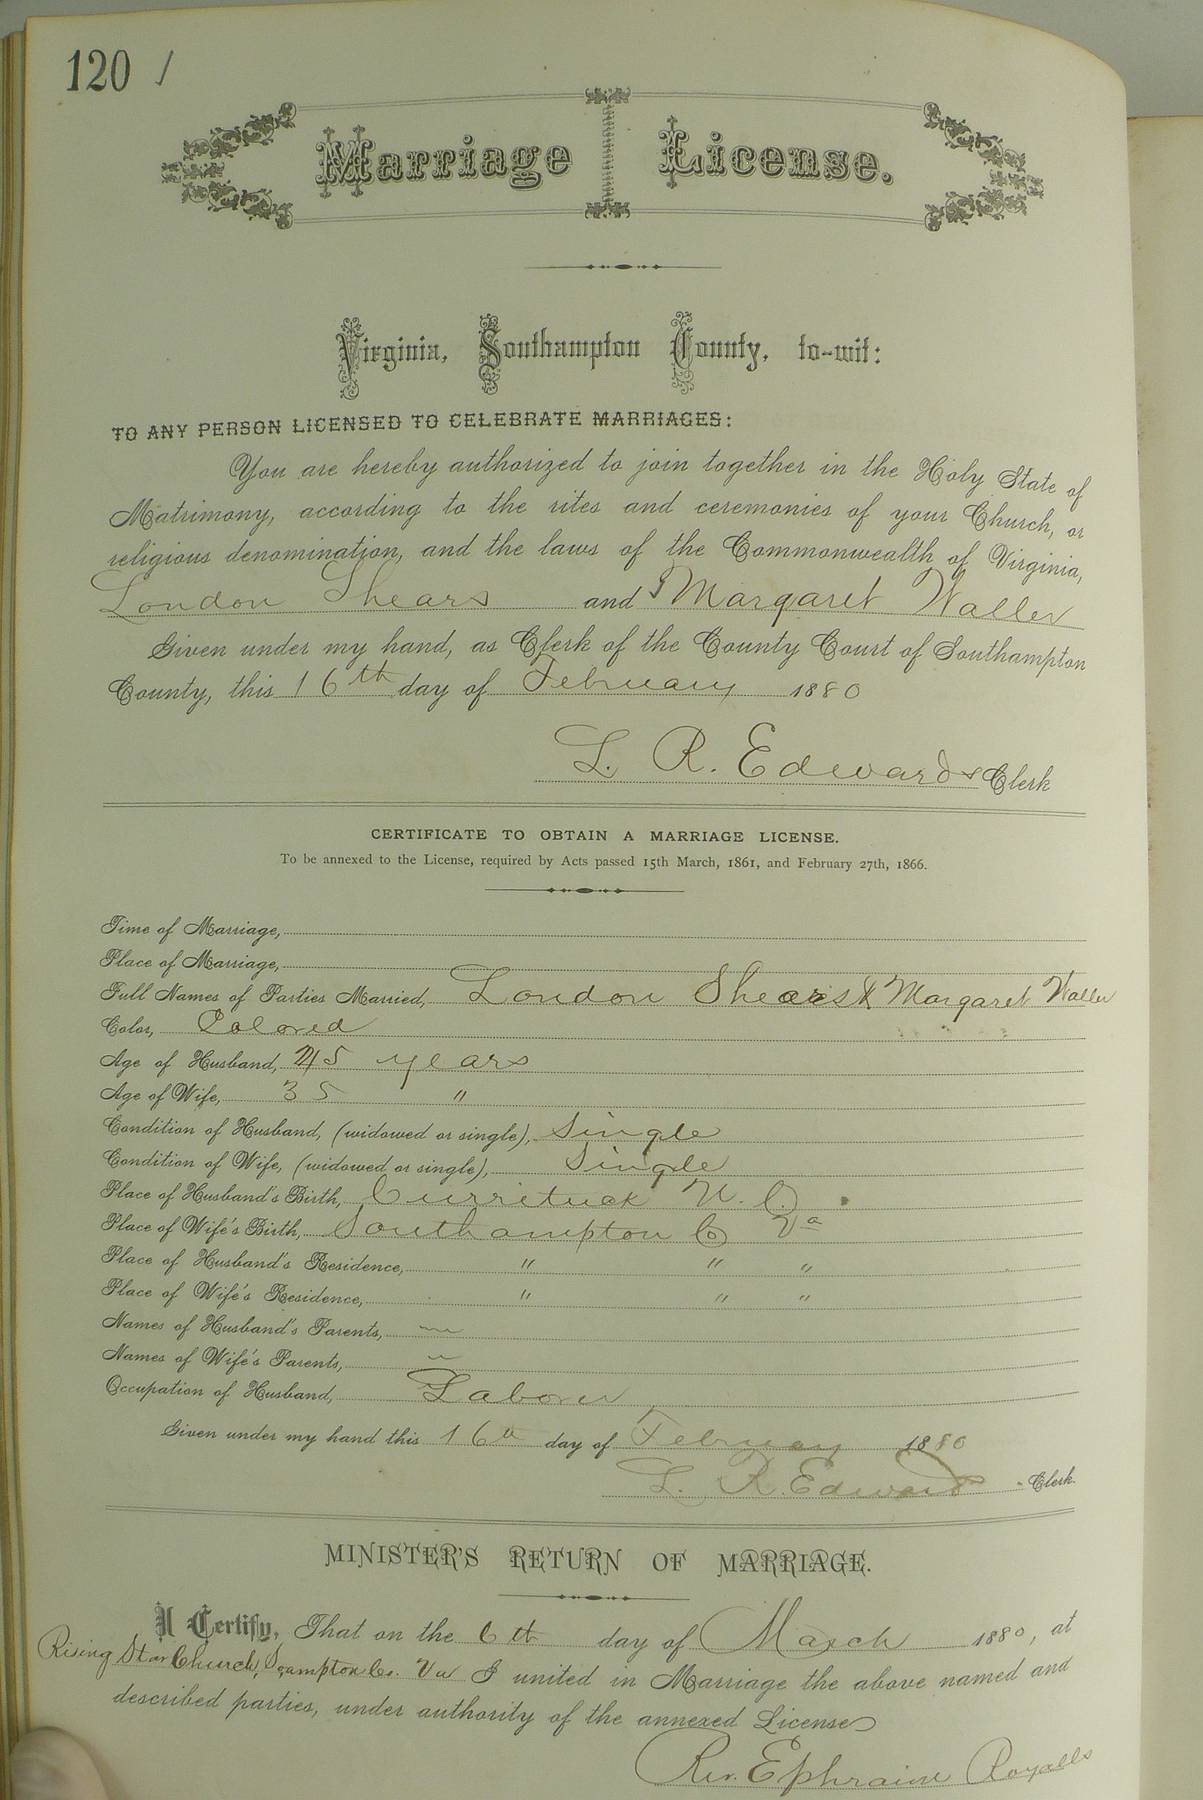 120 /
Marriage License.
Virginia, Southampton County, to-wit:
TO ANY PERSON LICENSED TO CELEBRATE MARRIAGES:
You are hereby authorized to join together in the Holy State of
Matrimony, according to the rites and ceremonies of your Church, or
religious denomination, and the laws of the Commonwealth of Virginia,
London Shears and Margaret Waller
Given under my hand, as Clerk of the County Court of Southampton
County, this 16th day of February 1880
L. R. Edwards Clerk
CERTIFICATE TO OBTAIN A MARRIAGE LICENSE.
To be annexed to the License, required by Acts passed 15th March, 1861, and February 27th, 1866.
Time of Marriage,
Place of Marriage,
Full Names of Parties Married, London Shears & Margaret Waller
Color, Colored
Age of Husband, 45 years
Age of Wife, 35 "
Condition of Husband, (widowed or single), Single
Condition of Wife, (widowed or single), Single
Place of Husband's Birth, Currituck N. C.
Place of Wife's Birth, Southampton Co Va
Place of Husband's Residence, " " "
Place of Wife's Residence, " " "
Names of Husband's Parents,
Names of Wife's Parents,
Occupation of Husband, Laborer
Given under my hand this 16th day of February 1880
L. R. Edwards Clerk.
MINISTER'S RETURN OF MARRIAGE.
I Certify, That on the 6th day of March 1880, at
Rising Star Church, Co. Va I united in Marriage the above named and
described parties, under authority of the annexed License
Rev. Ephraim Royalls